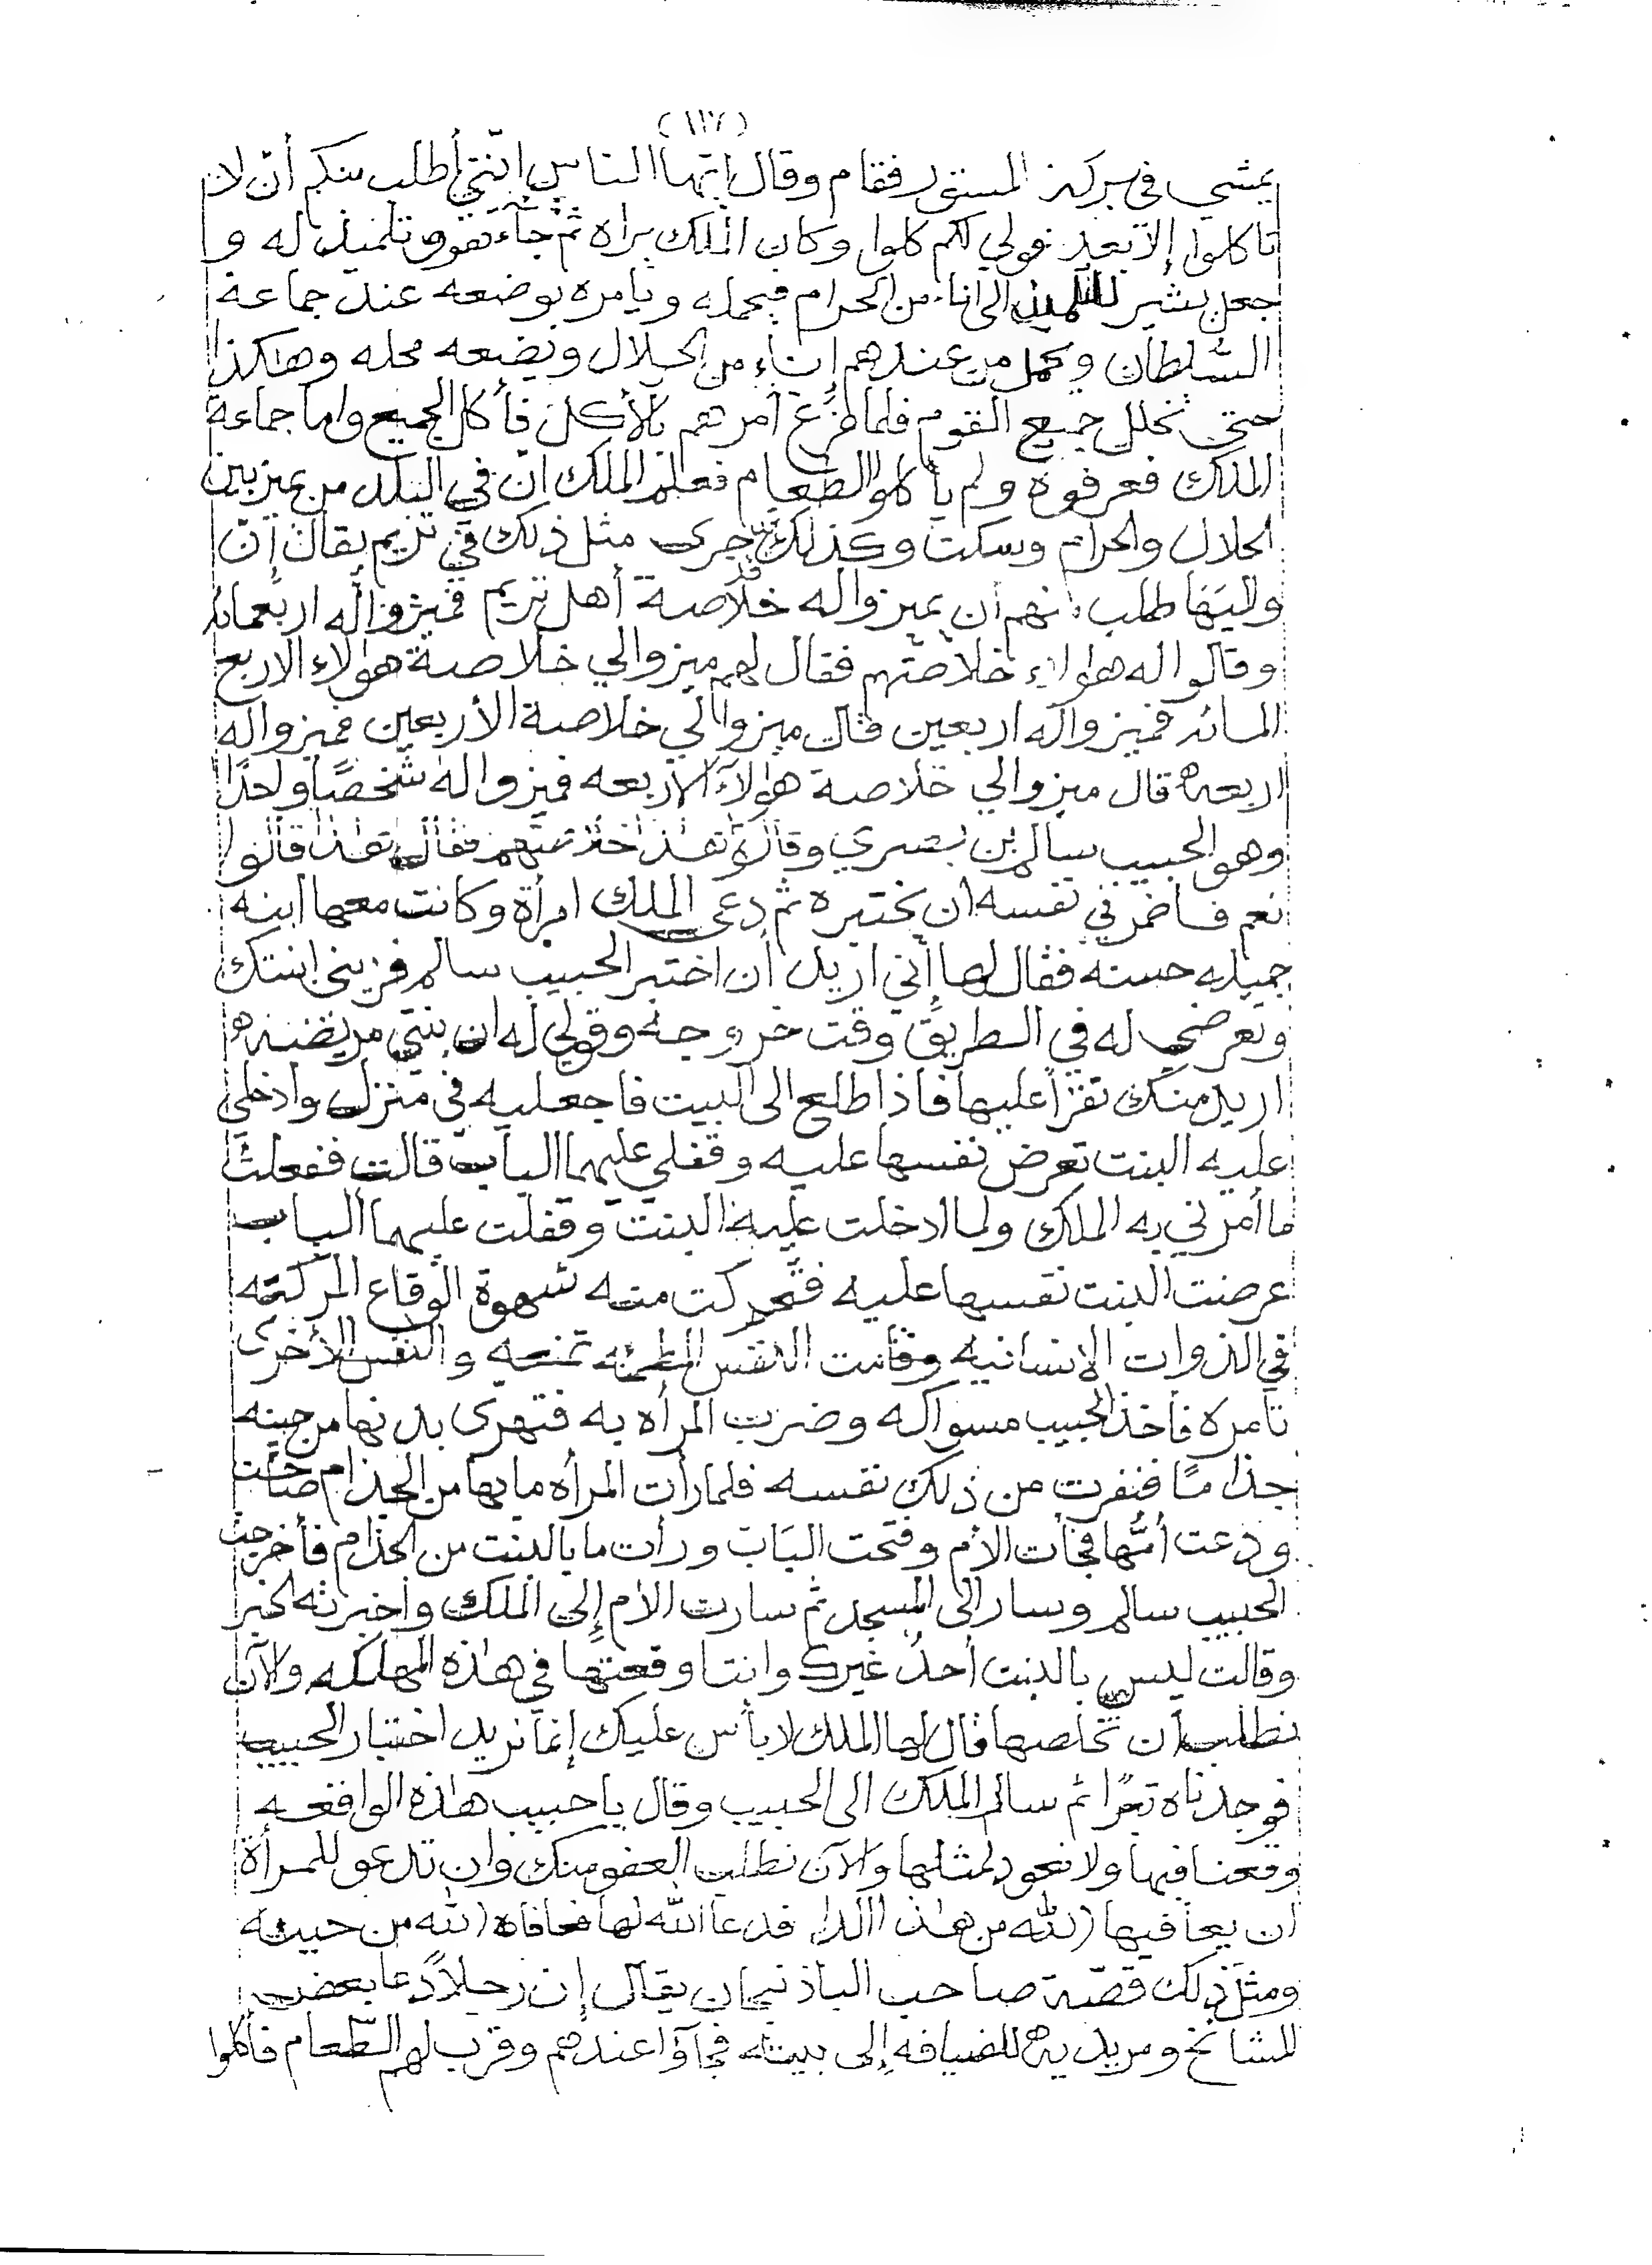 (١١٧)
يمشي في مركز المستور فقام وقال ايّها الناس انّني أطلب منكم أن لا
تاكلوا إلا بعد قولي لكم كلوا وكان الملك يراه ثم جاء هو وتلميذ له و
جعل يشير للتلميذ الى اناء من الحرام فيحمله ويامره بوضعه عند جماعة
السُلطان ويحمل من عندهم إناء من الحلال ويضعه محله وهاكذا
حتى تخلل جميع القوم فلما فرغ أمرهم بالأكل فأكل الجميع واما جماعة
الملك فعرفوه ولم يأكلوا الطعام فعلم الملك انّ في البلد من يميز بين
الحلال والحرام وسكت وكذلك جرى مثل ذلك في تريم يقال إنّ
واليَها طلب منهم أن يميزوا له خلاصة أهل تريم فميزوا له اربعمائه
وقالوا له هولاء خلاصتهم فقال لهم ميزوا لي خلاصة هولاء الاربع
المائه فميزوا له اربعين قال ميزوا لي خلاصة الأربعين فميزوا له
اربعه قال ميزوا لي خلاصة هولآء الاربعه فميزوا له شخصًا واحدًا
وهو الحبيب سالم بن بصري وقالوا هذا خلاصتهم فقال هذا قالوا
نعم فاضمر في نفسه ان يختبره ثم دعى الملك امرأة وكانت معها ابنه
جميله حسنه فقال لها إني اريد أن اختبر الحبيب سالم فزيني ابنتك
وتعرضي له في الطريق وقت خروجه وقولي له ان بنتي مريضه
اريد منك تقرأ عليها فاذا طلع الى البيت فاجعليه في منزل وادخلي
عليه البنت تعرض نفسها عليه وقفلي عليهما الباب قالت ففعلت
ما أمرني به الملك ولما أدخلت عليه البنت وقفلت عليهما الباب
عرضت البنت نفسها عليه فتحركت منه شهوة الوقاع المركبه
في الذوات الانسانيه وقامت النفس المطمئنه تمنعه والنفس الأخرى
تأمره فأخذ الحبيب مسواكه وضرب المرأه به فتهرى بدنها من حينه
جذامًا فنفرت من ذلك نفسه فلما رأت المرأه ما بها من الجذام صاحت
ودعت أمُّها فجأت الأم وفتحت البَاب ورأت ما بالبنت من الجذام فأخرجت
الحبيب سالم وسار الى المسجد ثم سارت الأم إلى الملك واخبرته الخبر
وقالت ليس بالبنت أحدٌ غيرك وانتا وقعتها في هذه المهلكه والآن
نطلب أن تخلصها قال لها الملك لا بأس عليك إنما نريد اختبار الحبيب
فوجدناه تبرًا ثم سار الملك الى الحبيب وقال يا حبيب هذه الواقعه
وقعنا فيها ولا نعود لمثلها والآن نطلب العفو منك وان تدعو للمرأة
ان يعافيها الله من هذا الداء فدعا الله لها فعافاه الله من حينه
ومثل ذلك قصّة صاحب الباذنجان يقال إن رجلاً دعا بعض
المشائخ ومريديه للضيافه إلى بيته فجآؤا عندهم وقرب لهم الطّعام فأكلوا